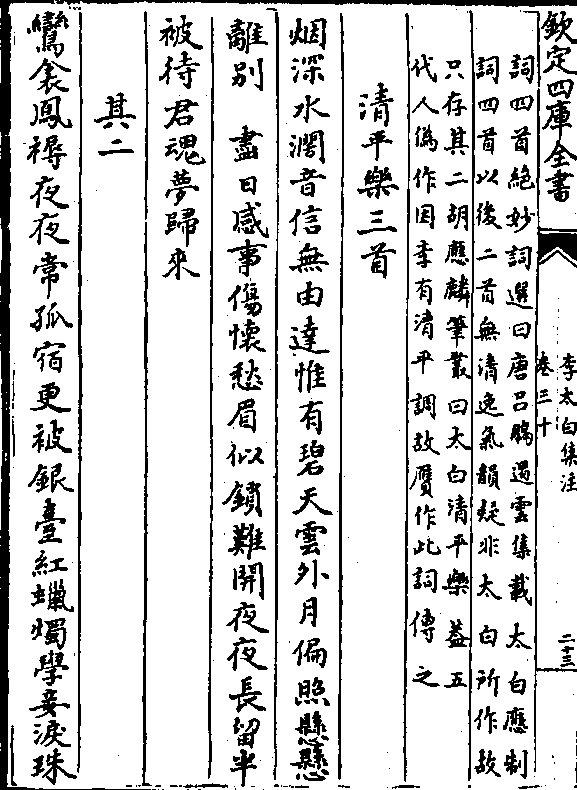 欽定四庫全書
李太白集注
卷三十
二十三
詞四首絶妙詞選曰唐呂鵬遏雲集載太白應制
詞四首以後二首無清逸氣韻疑非太白所作故
只存其二胡應麟筆叢曰太白清平樂葢五
代人僞作因李有清平調故贋作此詞傳之
清平樂三首
烟深水濶音信無由達惟有碧天雲外月偏照懸懸
離别　盡日感事傷懷愁眉似鎖難開夜夜長留半
被待君魂夢歸來
其二
鸞衾鳳褥夜夜常孤宿更被銀臺紅蠟燭學妾淚珠